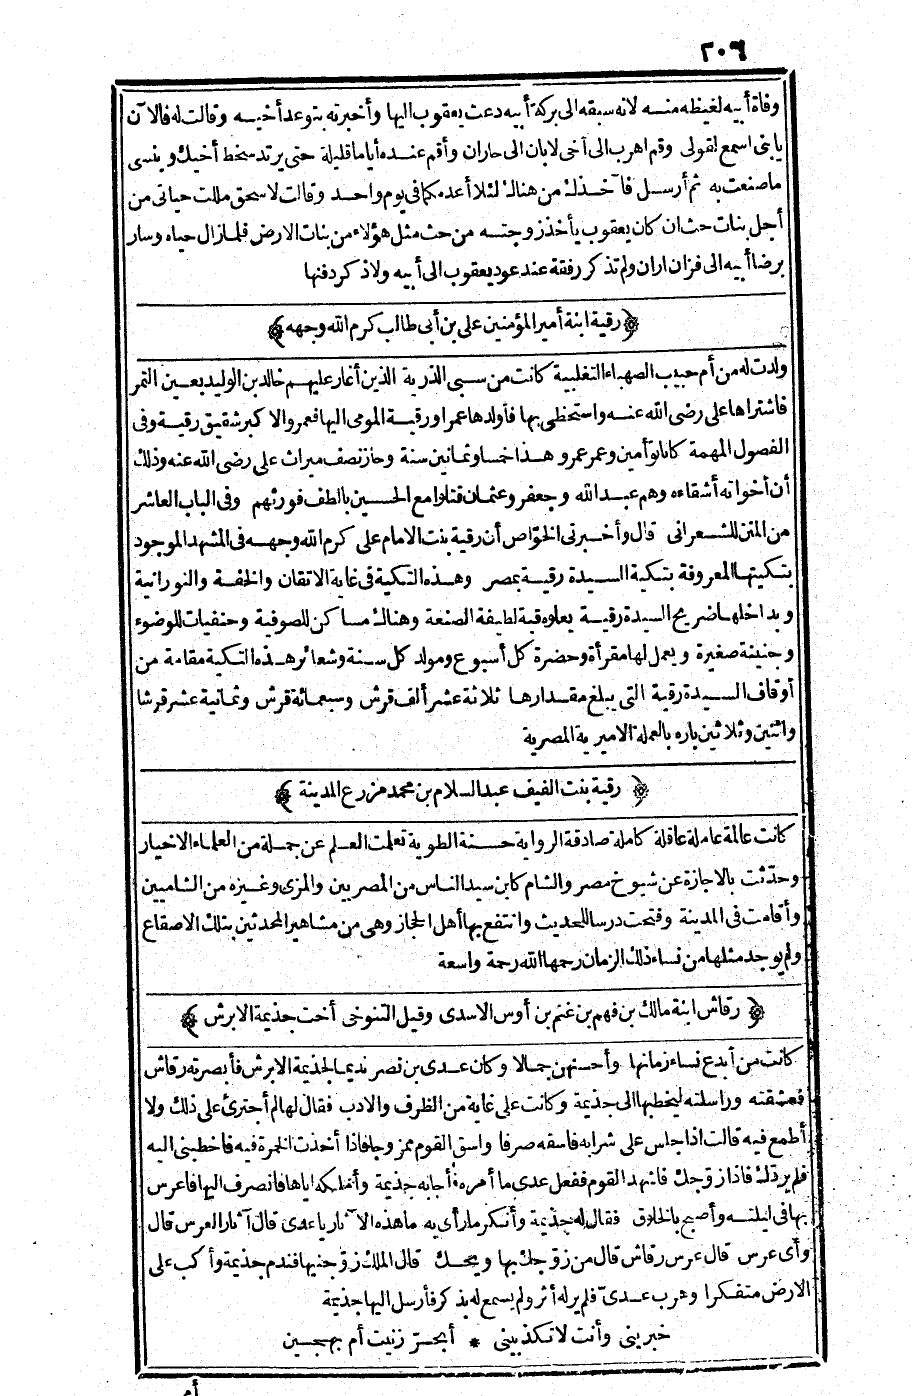 ٢٠٦
وفاة أبيه لغيظه منه لانه سبقه الى بركة أبيه دعت يعقوب اليها وأخبرته بتوعد أخيه وقالت له فالآن
يا بنى اسمع لقولى وقم اهرب الى أخى لابان الى حاران وأقم عنده أياما قليلة حتى يرتد سخط أخيك وينسى
ما صنعت به ثم أرسل فآخذك من هناك لئلا أعدمكما فى يوم واحد وقالت لاسحق مللت حياتى من
أجل بنات حث ان كان يعقوب يأخذ زوجته من حث مثل هؤلاء من بنات الارض فلماز ال حياه وسار
برضا أبيه الى فزان اران ولم تذكر رفقة عند عود يعقوب الى أبيه ولا ذكر دفنها
﴿رقية ابنة أمير المؤمنين على بن أبى طالب كرم الله وجهه﴾
ولدت له من أم حبيب الصهباء التغلبية كانت من سبى الذرية الذين أغار عليهم خالد بن الوليد بعين التمر
فاشتراها على رضى الله عنه واستحظى بها فأولدها عمرا ورقية المومى اليها فعمرو الاكبر شقيق رقية وفى
الفصول المهمة كانا توأمين وعمر عمرو هذا خمسا وثمانين سنة وحاز نصف ميراث على رضى الله عنه وذلك
أن أخواته أشقاءه وهم عبد الله وجعفر وعثمان قتلوا مع الحسين بالطف فورثهم وفى الباب العاشر
من المنن للشعرانى قال وأخبرنى الخواص أن رقية بنت الامام على كرم الله وجهه فى المشهد الموجود
بتكيتها المعروفة بتكية السيدة رقية بمصر وهذه التكية فى غاية الاتقان والخفة والنورانية
وبداخلها ضريح السيدة رقية يعلوه قبة لطيفة الصنعة وهناك مساكن للصوفية وحنفيات للوضوء
وجنينة صغيرة ويعمل لها مقرأة وحضرة كل أسبوع ومولد كل سنة وشعائر هذه التكية مقامة من
أوقاف السيدة رقية التى يبلغ مقدارها ثلاثة عشر ألف قرش وسبعمائة قرش وثمانية عشر قرشا
واثنين وثلاثين باره بالعملة الاميرية المصرية
﴿رقية بنت الفيف عبد السلام بن محمد مزرع المدينة﴾
كانت عالمة عاملة عاقلة كاملة صادقة الرواية حسنة الطوية تعلمت العلم عن جملة من العلماء الاخيار
وحدثت بالاجازة عن شيوخ مصر والشام كابن سيد الناس من المصريين والمزى وغيره من الشاميين
وأقامت فى المدينة وفتحت درسا للحديث وانتفع بها أهل الحجاز وهى من مشاهير المحدثين بتلك الاصقاع
ولم يوجد مثلها من نساء ذلك الزمان رحمها الله رحمة واسعة
﴿رقاش ابنة مالك بن فهم بن غنم بن أوس الاسدى وقيل التنوخى أخت جذيمة الابرش﴾
كانت من أبدع نساء زمانها وأحسنهن جمالا وكان عدى بن نصر نديما لجذيمة الابرش فأبصرته رقاش
فعشقته وراسلته ليخطبها الى جذيمة وكانت على غاية من الظرف والادب فقال لها لم أجترئ على ذلك ولا
أطمع فيه قالت اذا جلس على شرابه فاسقه صرفا واسق القوم ممزوجا فاذا أخذت الخمرة فيه فاخطبنى اليه
فلم يردك فاذا زوجك فاشهد القوم ففعل عدى ما أمره فأجابه جذيمة وأملكه اياها فانصرف اليها فاعرس
بها فى ليلته وأصبح بالخلوق فقال له جذيمة وأنكر ما رأى به ما هذه الآثار يا عدى قال آثار العرس قال
وأى عرس قال عرس رقاش قال من زوجك بها ويحك قال الملك زوجنيها فندم جذيمة وأكب على
الارض متفكرا وهرب عدى فلم ير له أثر ولم يسمع له بذكر فأرسل اليها جذيمة
خبرينى وأنت لا تكذبينى * أبحر زنيت أم بهجين
أم